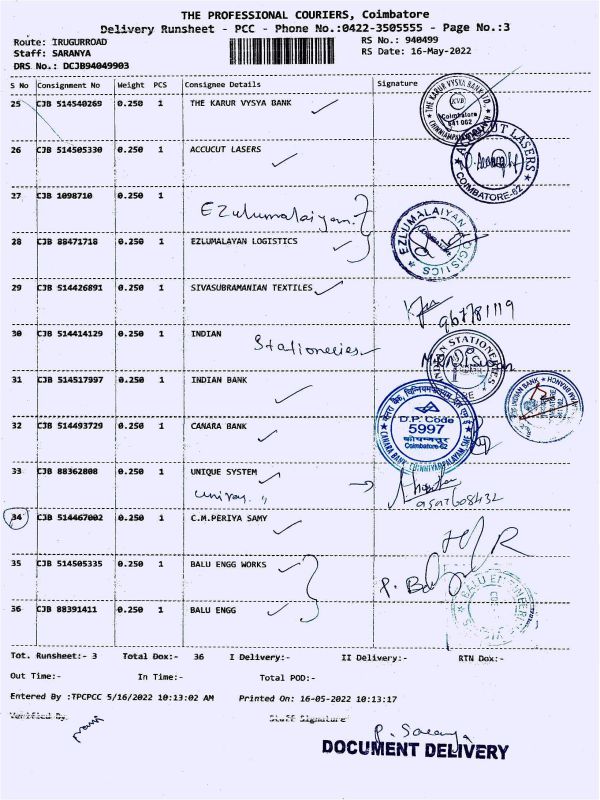 THE PROFESSIONAL COURIERS, Coimbatore
Delivery Runsheet - PCC - Phone No.:0422-3505555 - Page No.:3
Route: IRUGURROAD RS No.: 940499
Staff: SARANYA RS Date: 16-May-2022
DRS No.: DCJB94049903
S No Consignment No Weight PCS Consignee Details Signature
25 CJB 514540269 0.250 1 THE KARUR VYSYA BANK
THE KARUR VYSYA BANK LTD.,
KVB
Coimbatore
641 062
26 CJB 514505330 0.250 1 ACCUCUT LASERS
ACCUCUT LASERS
COIMBATORE-62
27 CJB 1098710 0.250 1
Ezulumalaiyan
28 CJB 88471718 0.250 1 EZLUMALAYAN LOGISTICS
EZLUMALAIYAN LOGISTICS
29 CJB 514426891 0.250 1 SIVASUBRAMANIAN TEXTILES
967781119
30 CJB 514414129 0.250 1 INDIAN
Stationeries
INDIAN STATIONERIES
31 CJB 514517997 0.250 1 INDIAN BANK
INDIAN BANK
32 CJB 514493729 0.250 1 CANARA BANK
D.P. Code
5997
Coimbatore-62
CANARA BANK, CHINNIYAMPALAYAM, SME
33 CJB 88362808 0.250 1 UNIQUE SYSTEM
34 CJB 514467002 0.250 1 C.M.PERIYA SAMY
35 CJB 514505335 0.250 1 BALU ENGG WORKS
36 CJB 88391411 0.250 1 BALU ENGG
Tot. Runsheet:- 3 Total Dox:- 36 I Delivery:- II Delivery:- RTN Dox:-
Out Time:- In Time:- Total POD:-
Entered By :TPCPCC 5/16/2022 10:13:02 AM Printed On: 16-05-2022 10:13:17
Verified By Staff Signature
P. Saranya
DOCUMENT DELIVERY